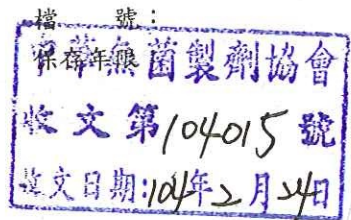 檔　　號：
保存年限：
中華無菌製劑協會
收文第104015號
收文日期:104年2月24日